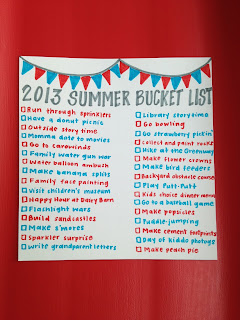 2013 SUMMER BUCKET LIST
Run through sprinklers
Have a donut picnic
Outside story time
Momma date to movies
Go to carowinds
Family water gun war
Water balloon ambush
Make banana splits
Family face painting
visit children's museum
Happy Hour at Dairy Barn
Flashlight wars
Build sandcastles
Make s'mores
Sparkler surprise
Write grandparent letters
Library storytime
Go bowling
Go strawberry pickin'
Collect and paint rocks
Hike at the Greenway
Make flower crowns
Make bird feeders
Backyard obstacle course
Play Putt-Putt
Kids choice dinner menu
Go to a baseball game
Make popsicles
Puddle-jumping
Make cement footprints
Day of kiddo photogs
Make peach pie